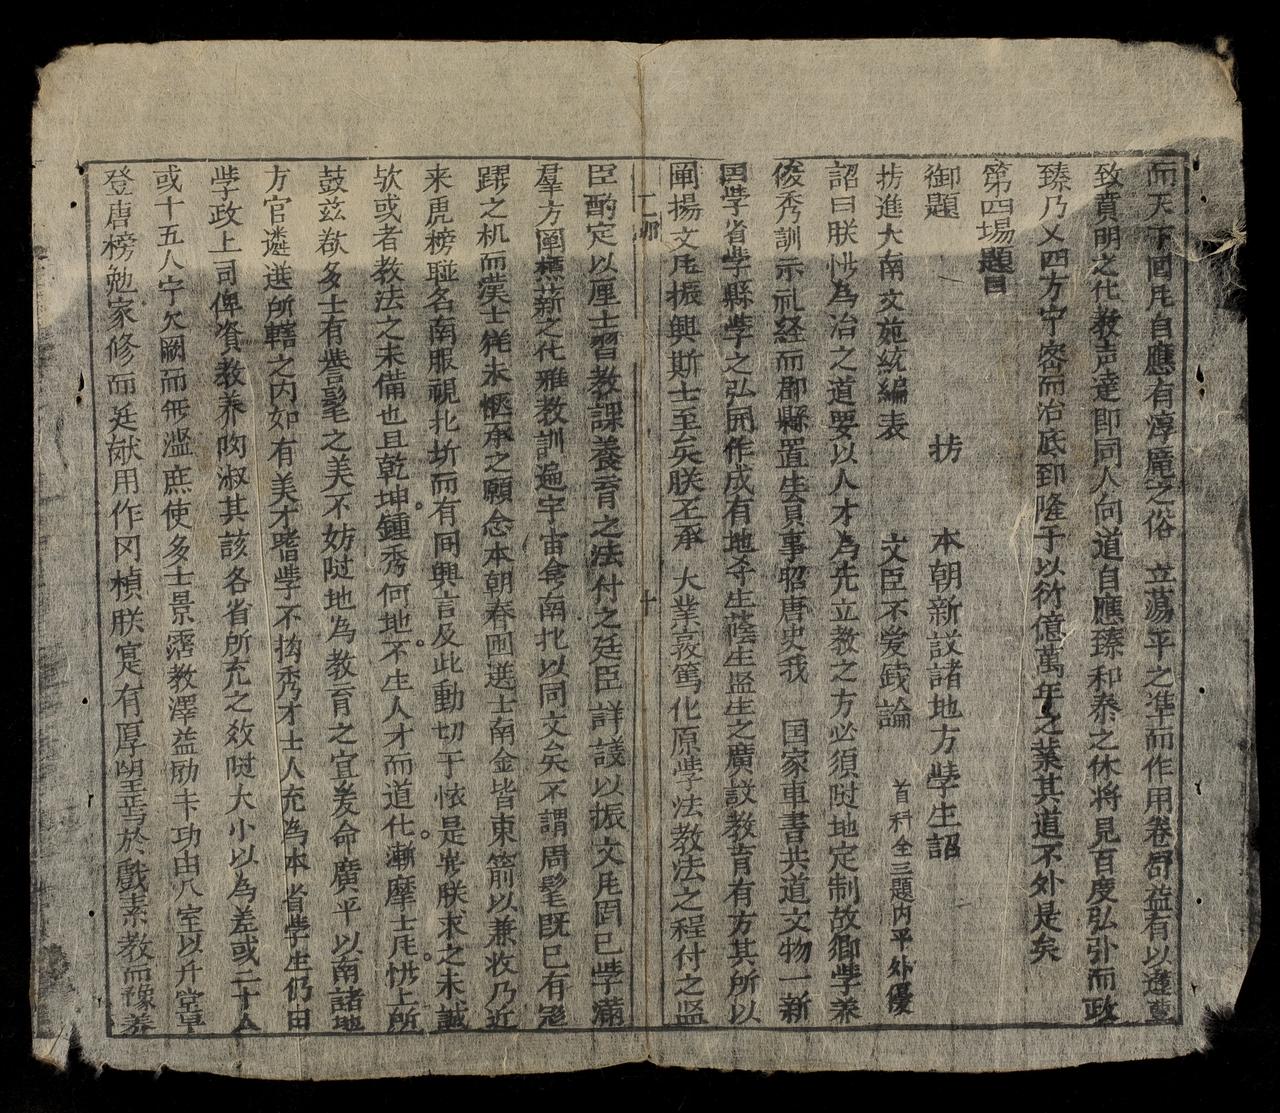 而天下囯凡自應有淳龐之俗 立蕩平之準而作用卷舒益有以逢
致賁明之化教声達即同人向道自應臻和泰之休将見百度弘弘而政
臻乃乂四方宁密而治底郅隆于以衍億萬年之業其道不外是矣
第四場題目
御題 拟 本朝新設諸地方斈生詔
拟進大南文苑統編表 文臣不爱銭論 首科全三題内平外優
詔曰朕惟為治之道要以人才為先立教之方必須随地定制故鄉斈養
俊秀訓示礼経而郡縣置生員事昭唐史我 囯家車書共道文物一新
囯斈省斈縣斈之弘開作成有地夲生蔭生监生之廣設教育有方其所以
闡揚文凡振興斯士至矣朕丕承 大業敦篤化原斈法教法之程付之监
臣酌定以厘士習教課養育之法付之廷臣詳議以振文凡囯已斈滿
羣方闡樵薪之化雅教訓遍宇宙禽南北以同文矣不謂周髦既已有
躍之机而漢士犹未愜承之願念本朝春囲選士南金皆東箭以兼收乃近
来虎榜聯名南服視北圻而有间興言及此動切于懐是岂朕求之未誠
欤或者教法之未備也且乾坤鍾秀何地不生人才而道化漸摩士凡惟上所
鼓兹欲多士有誉髦之美不妨随地為教育之宜爰命廣平以南諸地
方官遴选所轄之内如有美才嗜斈不拘秀才士人充為本省斈生仍由
斈政上司俾資教养陶淑其該各省所充之数随大小以為差或二十人
或十五人宁欠阙而無滥庶使多士景霑教澤益励卡功由八室以升堂早
登唐榜勉家修而廷献用作冈楨朕寔有厚望焉於戲素教而豫养